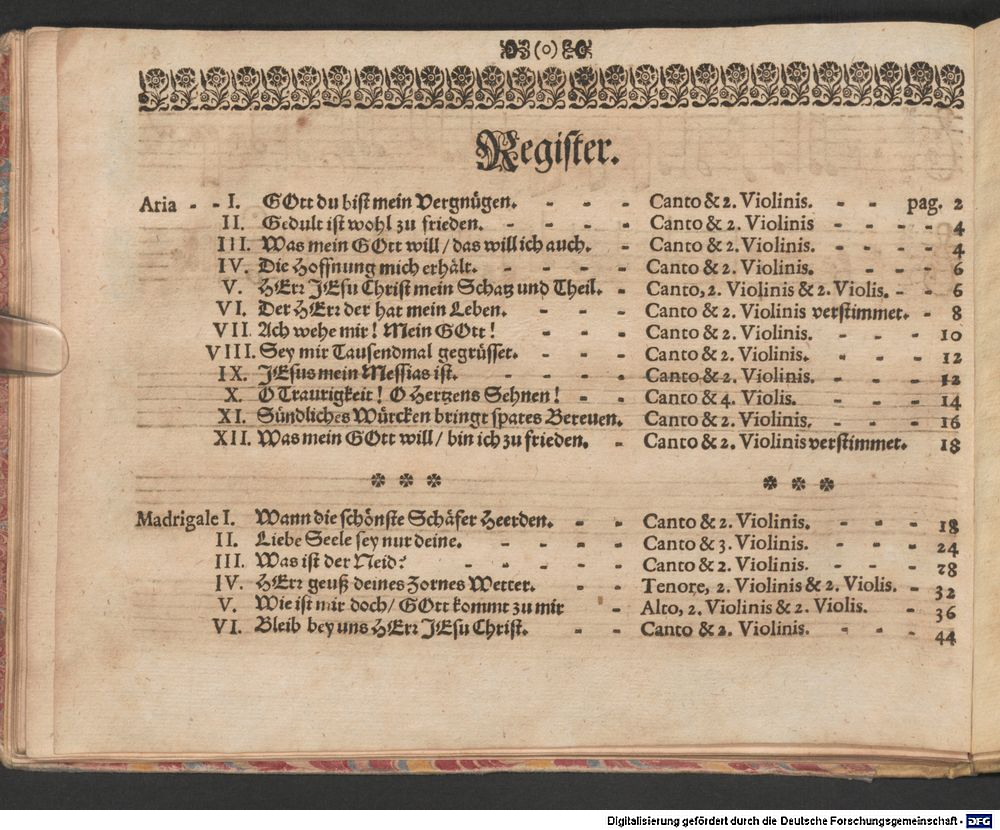 (o)
Register.
Aria - - I. GOtt du bist mein Vergnügen. - - - Canto & 2. Violinis. - - pag. 2
II. Gedult ist wohl zu frieden. - - - - Canto & 2. Violinis - - - - 4
III. Was mein GOtt will / das will ich auch. - - Canto & 2. Violinis. - - - - 4
IV. Die Hoffnung mich erhält. - - - - - Canto & 2. Violinis. - - - 6
V. HErr JEsu Christ mein Schatz und Theil. - Canto, 2. Violinis & 2. Violis. - - 6
VI. Der HErr der hat mein Leben. - - - Canto & 2. Violinis verstimmet. - 8
VII. Ach wehe mir! Mein GOtt! - - - Canto & 2. Violinis. - - - 10
VIII. Sey mir Tausendmal gegrüsset. - - - Canto & 2. Violinis. - - - 12
IX. JEsus mein Messias ist. - - - - Canto & 2. Violinis. - - - 12
X. O Traurigkeit! O Hertzens Sehnen! - - Canto & 4. Violis. - - - 14
XI. Sündliches Würcken bringt spates Bereuen. Canto & 2. Violinis. - - - 16
XII. Was mein GOtt will / bin ich zu frieden. - Canto & 2. Violinis verstimmet. 18
Madrigale I. Wann die schönste Schäfer Heerden. - - Canto & 2. Violinis. - - - 18
II. Liebe Seele sey nur deine. - - - - Canto & 3. Violinis. - - - 24
III. Was ist der Neid? - - - - - Canto & 2. Violinis. - - - 28
IV. HErr geuß deines Zornes Wetter. - - Tenore, 2. Violinis & 2. Violis. - 32
V. Wie ist mir doch / GOtt kommt zu mir - Alto, 2. Violinis & 2. Violis. - 36
VI. Bleib bey uns HErr JEsu Christ. - - Canto & 2. Violinis. - - - 44
Digitalisierung gefördert durch die Deutsche Forschungsgemeinschaft - DFG